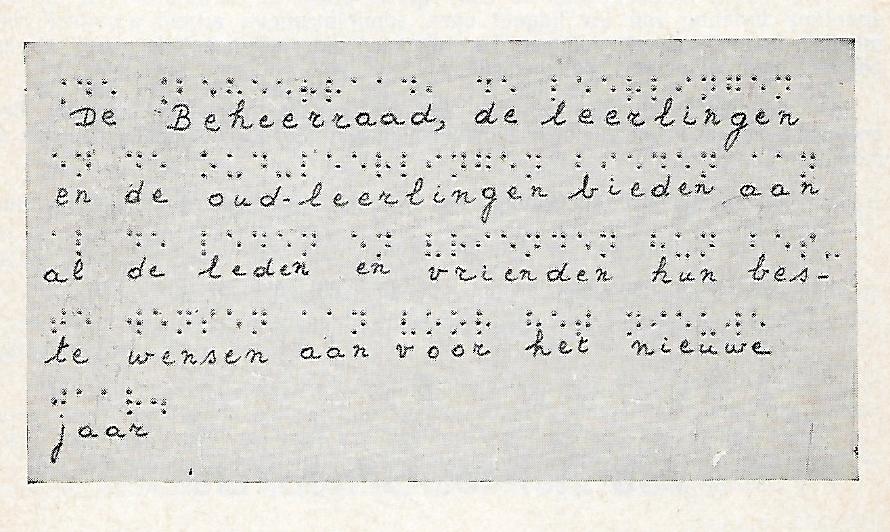 De Beheerraad, de leerlingen
en de oud-leerlingen bieden aan
al de leden en vrienden hun bes-
te wensen aan voor het nieuwe
jaar